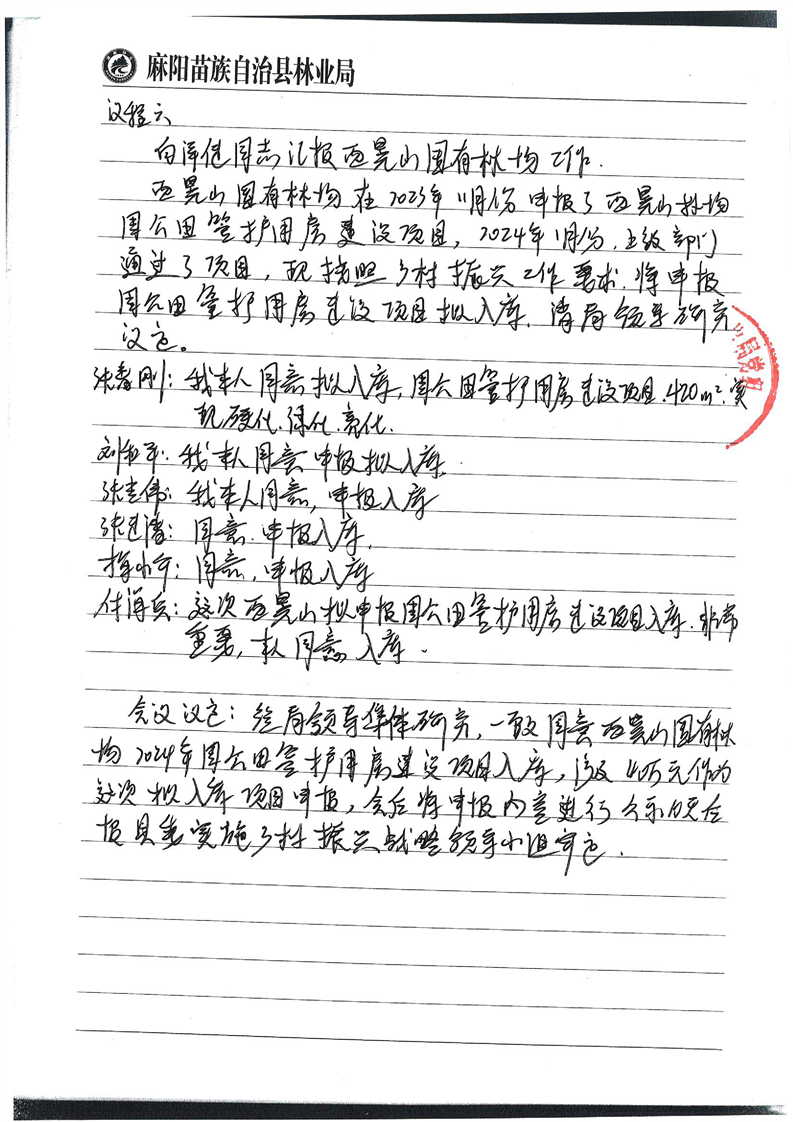 麻阳苗族自治县林业局
议程六
同志汇报西晃山国有林场工作.
西晃山国有林场在2023年11月份申报了西晃山林场
周公田管护用房建设项目, 2024年1月份,上级部门
通过了项目, 现按照乡村振兴工作要求.将申报
周公田管护用房建设项目拟入库.请局领导研究
议定。
张 刚: 我本人同意拟入库,周公田管护用房建设项目.420m².实
现硬化.绿化.亮化.
刘 平: 我本人同意申报拟入库.
张 伟: 我本人同意, 申报入库
张建 : 同意.申报入库,
同意, 申报入库
付 兵: 这次西晃山拟申报周公田管护用房建设项目入库.非常
重要, 本人同意入库.
会议议定: 经局领导集体研究, 一致同意西晃山国有林
场2024年周公田管护用房建设项目入库, 万元作为
这次拟入库项目申报, 会后将申报内容进行公示 天后
报县委实施乡村振兴战略领导小组审定.
局党组